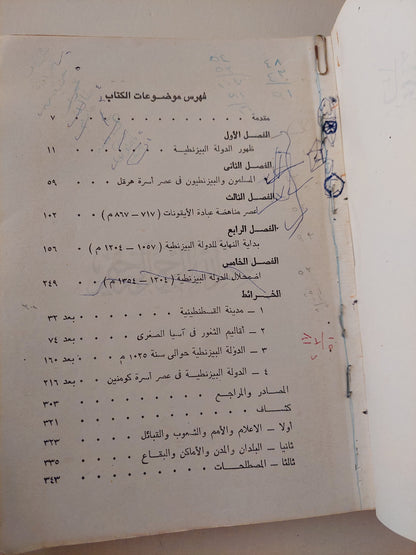 فهرس موضوعات الكتاب
مقدمة ٧
الفصل الأول
ظهور الدولة البيزنطية ١١
الفصل الثانى
المسلمون والبيزنطيون فى عصر أسرة هرقل ٥٩
الفصل الثالث
عصر مناهضة عبادة الأيقونات ( ٧١٧ – ٨٦٧ م ) ١٠٢
الفصل الرابع
بداية النهاية للدولة البيزنطية ( ١٠٥٧ – ١٢٠٤ م ) ١٥٦
الفصل الخامس
اضمحلال الدولة البيزنطية ( ١٢٠٤ – ١٣٥٤ م ) ٢٤٩
الخرائط
١ – مدينة القسطنطينية بعد ٣٢
٢ – أقاليم الثغور فى آسيا الصغرى بعد ٧٤
٣ – الدولة البيزنطية حوالى سنة ١٠٢٥ م بعد ١٦٠
٤ – الدولة البيزنطية فى عصر أسرة كومنين بعد ٢١٦
المصادر والمراجع ٣٠٣
كشاف ٣٢١
أولا – الاعلام والأمم والشعوب والقبائل ٣٢٣
ثانيا – البلدان والمدن والأماكن والبقاع ٣٣٥
ثالثا – المصطلحات ٣٤٣